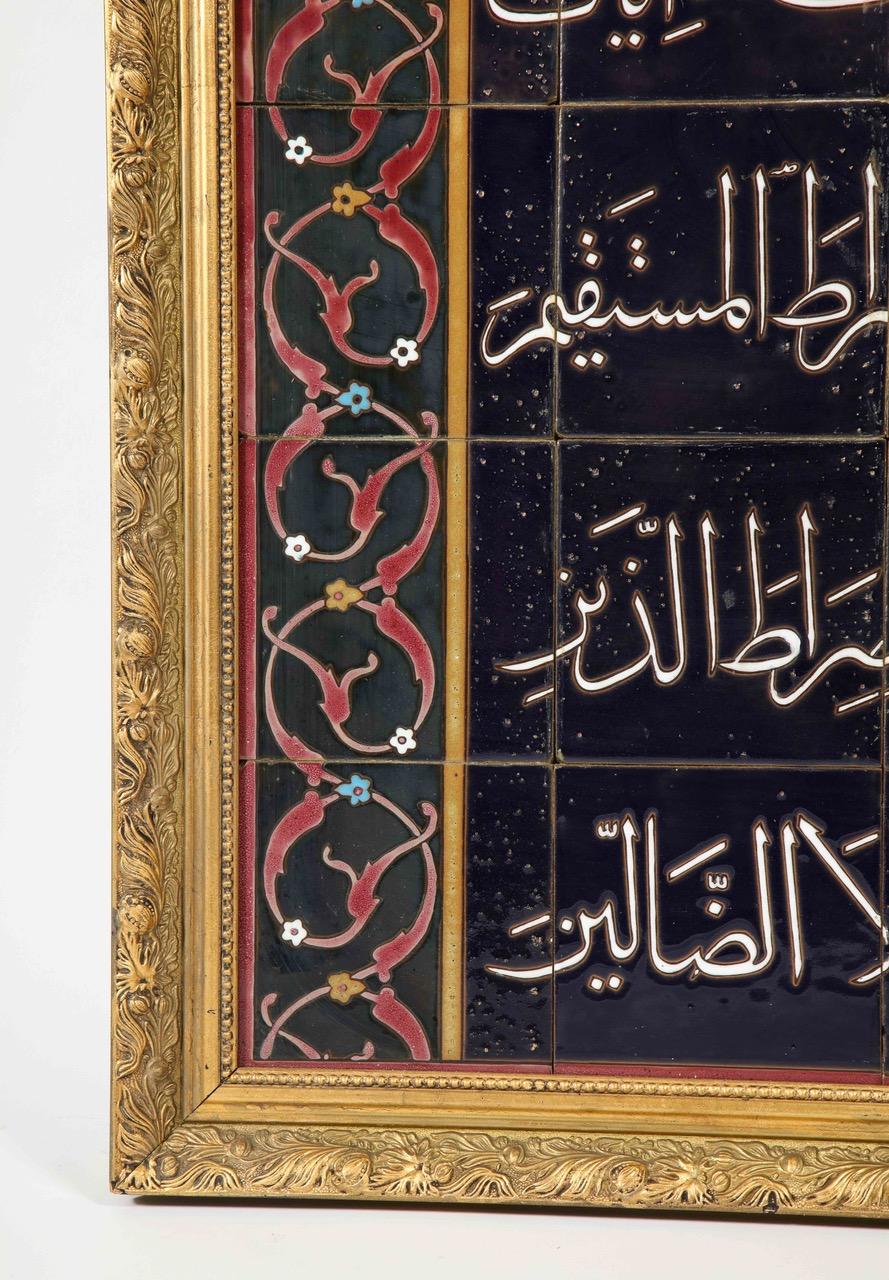 إياك
صراط المستقيمَ
صِرَاطَ الَّذِينَ
لَا الضَّالِّينَ